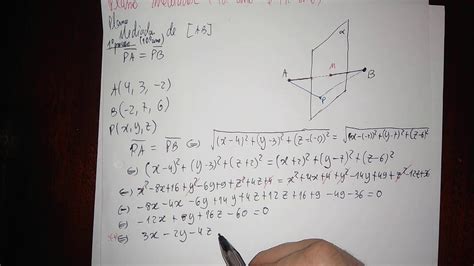 Plano
Mediador de [AB]
PA = PB
α
A
M
B
P
A(4, 3, -2)
B(-2, 7, 6)
P(x, y, z)
PA = PB ⇔ √((x-4)²+(y-3)²+(z-(-2))²) = √((x-(-2))²+(y-7)²+(z-6)²)
⇔ (x-4)²+(y-3)²+(z+2)² = (x+2)²+(y-7)²+(z-6)²
⇔ x²-8x+16+y²-6y+9+z²+4z+4 = x²+4x+4+y²-14y+49+z²-12z+36
⇔ -8x-4x-6y+14y+4z+12z+16+9-49-36=0
⇔ -12x+8y+16z-60=0
⇔ 3x-2y-4z